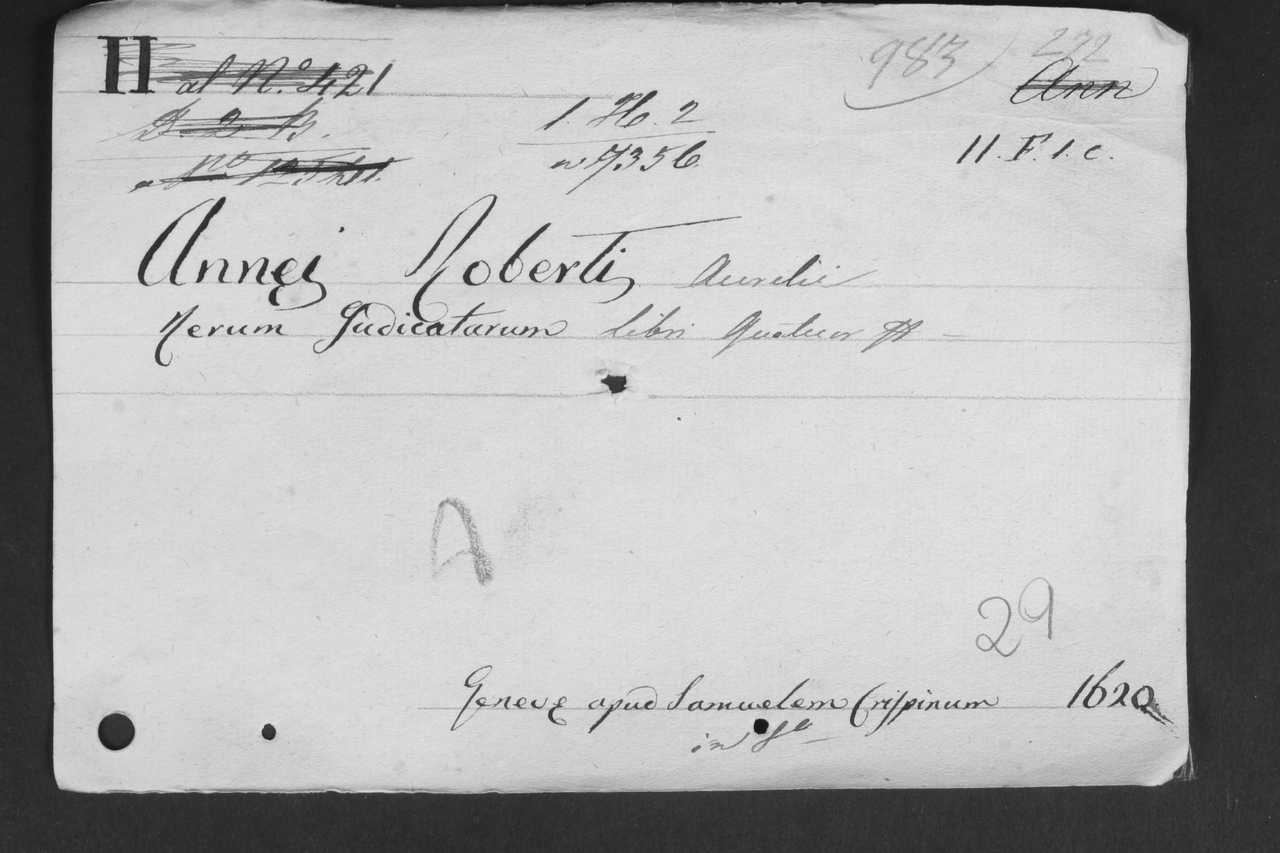 II al N.º 421
983
272
Ann
1. H. 2
nº 7356
11. F. 1. c.
Annęi Roberti Aurelii
Rerum Judicatarum Libri Quatuor
A
29
Genevę apud Samuelem Crispinum 1620
in 8º